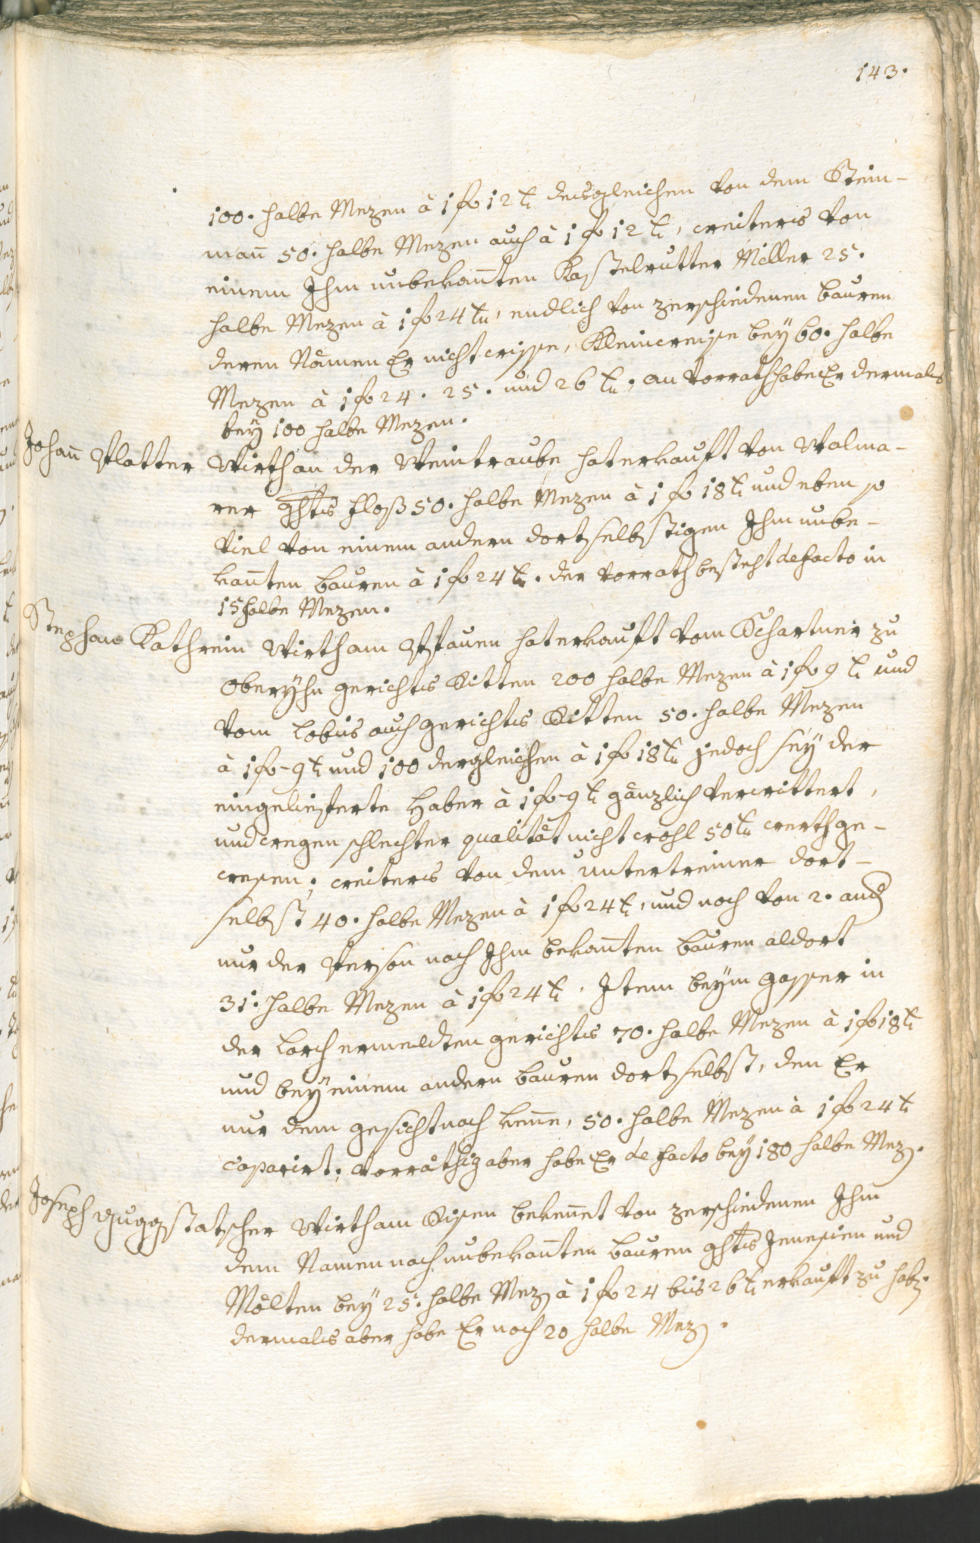 143.
100. halbe Mezen à 1 f 12 kr desgleichen von dem Stein-
mañ 50. halbe Mezen auch à 1 f 12 kr, weiters von
einem Ihm unbekañten Kastelrutter Müller 25.
halbe Mezen à 1 f 24 kr, endlich von zerschiedenen bauren
deren Nämen Er nicht wisse, Kleinweise bey 60. halbe
Mezen à 1 f 24. 25. und 26 kr, an Vorrath habe Er dermals
bey 100 halbe Mezen.
Johañ Platter Wirth an der Weintraube hat erkauft von Walma-
rer ghts 50. halbe Mezen à 1 f 18 kr und eben so
viel von einem andern dortselbstigen Ihm unbe-
kañten bauren à 1 f 24 kr. der Vorrath besteht de facto in
15 halbe Mezen.
Stephan Kathrein Wirth am Pfauen hat erkauft vom Schartner zu
Oberyhn gerichts Ritten 200 halbe Mezen à 1 f 9 kr und
vom Lobis auch gerichts Ritten 50. halbe Mezen
à 1 f - 9 kr und 100 dergleichen à 1 f 18 kr jedoch sey der
eingelieferte Haber à 1 f - 9 kr gänzlich verwittert,
und wegen schlechter qualität nicht wohl 50 kr werth ge-
wesen; weiters von dem Untertreiner dort-
selbst 40. halbe Mezen à 1 f 24 kr, und noch von 2. and
nur der Person nach Ihm bekañten bauren aldort
31. halbe Mezen à 1 f 24 kr. Item beym gasser in
der Lorch ermeldten gerichts 70. halbe Mezen à 1 f 18 kr
und bey einem andern bauren dortselbst, den Er
nur dem gesicht nach keñe, 50. halbe Mezen à 1 f 24 kr
caparirt; Vorräthig aber habe Er de facto bey 180 halbe Mez.
Joseph Guggstatscher Wirth am Risen bekeñet von zerschiedenen Ihm
dem Namen nach unbekañten bauren ghts Jenesien und
Mölten bey 25. halbe Mez à 1 f 24 bis 26 kr erkauft zu hab.
dermals aber habe Er noch 20 halbe Mez.